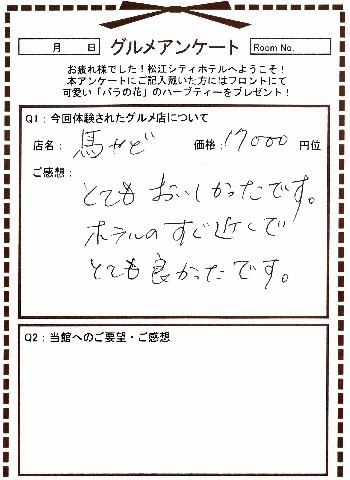 月 日 グルメアンケート Room No.
お疲れ様でした！松江シティホテルへようこそ！
本アンケートにご記入戴いた方にはフロントにて
可愛い「バラの花」のハーブティーをプレゼント！
Q1：今回体験されたグルメ店について
店名： 馬やど 価格： 17000 円位
ご感想：
とてもおいしかったです。
ホテルのすぐ近くで
とても良かったです。
Q2：当館へのご要望・ご感想